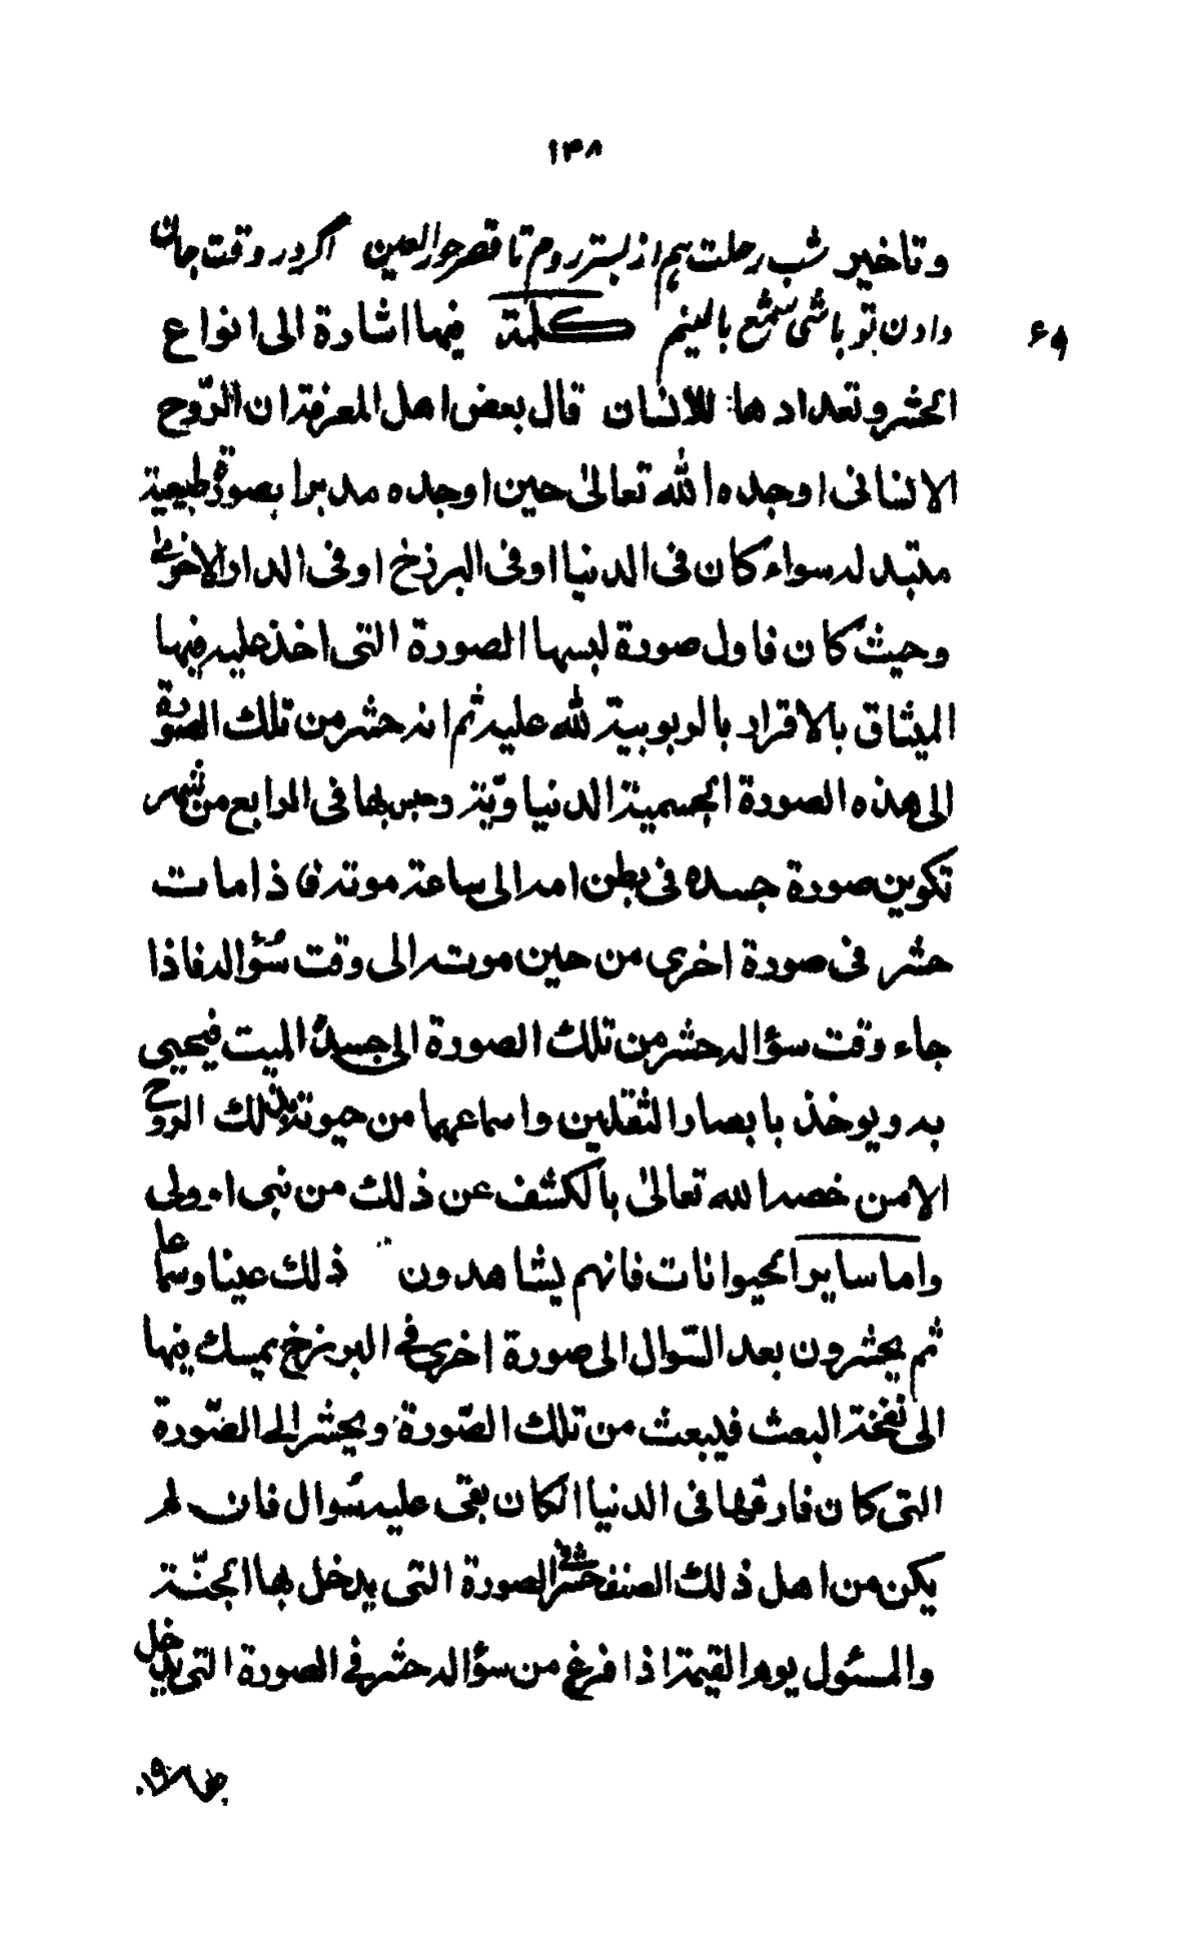 ۱۳۸
وتاخير شب رحلت هم از بستر روم تا قصر حور العين اگر در وقت جان
دادن تو باشى شمع بالينم كلمة فيها اشارة الى انواع
الحشر وتعدادها للانسان قال بعض اهل المعرفة ان الرّوح
الانسانى اوجده الله تعالىٰ حين اوجده مدبرا بصورة طبيعية
متبدله سواء كان فى الدنيا او فى البرزخ او فى الدار الاخرة
وحيث كان فاول صورة لبسها الصورة التى اخذ عليه فيها
الميثاق بالاقرار بالربوبية لله عليه ثم انه حشر من تلك الصورة
الى هذه الصورة الجسمية الدنياويّة وحبس بها فى الرابع من شهر
تكوين صورة جسده فى بطن امه الى ساعة موته فاذا مات
حشر فى صورة اخرى من حين موته الى وقت سُؤاله فاذا
جاء وقت سؤاله حشر من تلك الصورة الى جسده الميت فيحيى
به ويوخذ بابصار الثقلين واسماعهما من حيوته بذلك الروح
الا من خصه الله تعالىٰ بالكشف عن ذلك من نبى او ولى
واما ساير الحيوانات فانهم يشاهدون ذلك عينا وسماعا
ثم يحشرون بعد السّوال الى صورة اخرى فى البرزخ يمسك فيها
الى نفخة البعث فيبعث من تلك الصّورة ويحشر الى الصّورة
التى كان فارقها فى الدنيا ان كان بقى عليه سُوال فان لم
يكن من اهل ذلك الصنف حشر فى الصورة التى يدخل بها الجنّة
والمسئول يوم القيمة اذا فرغ من سؤاله حشر فى الصورة التى يدخل